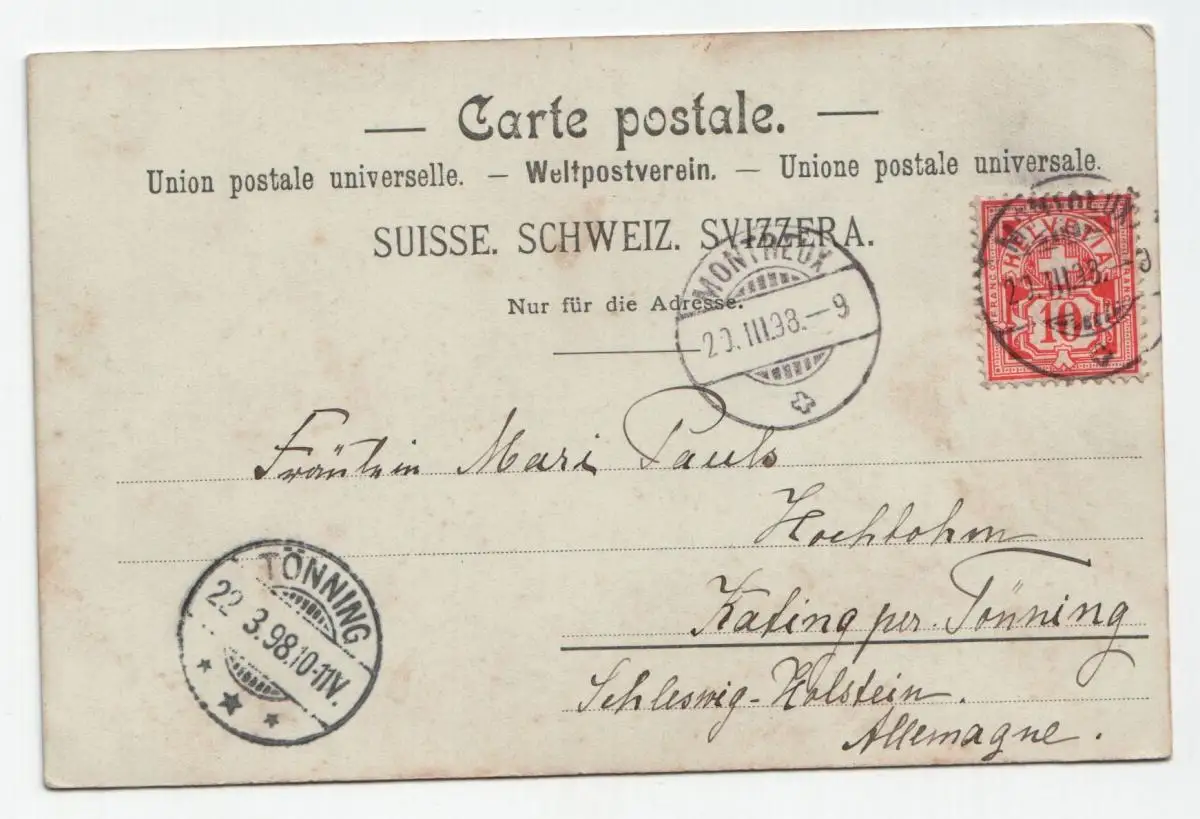 — Carte postale. —
Union postale universelle. — Weltpostverein. — Unione postale universale.
SUISSE. SCHWEIZ. SVIZZERA.
Nur für die Adresse.
MONTREUX
20.III.98.–9
MONTREUX
20.III.98.–9
HELVETIA
FRANCO
10
Fräulein Mari Pauls
Hochbohm
Kating per. Tönning
Schleswig-Holstein.
Allemagne.
TÖNNING
22.3.98.10-11V.